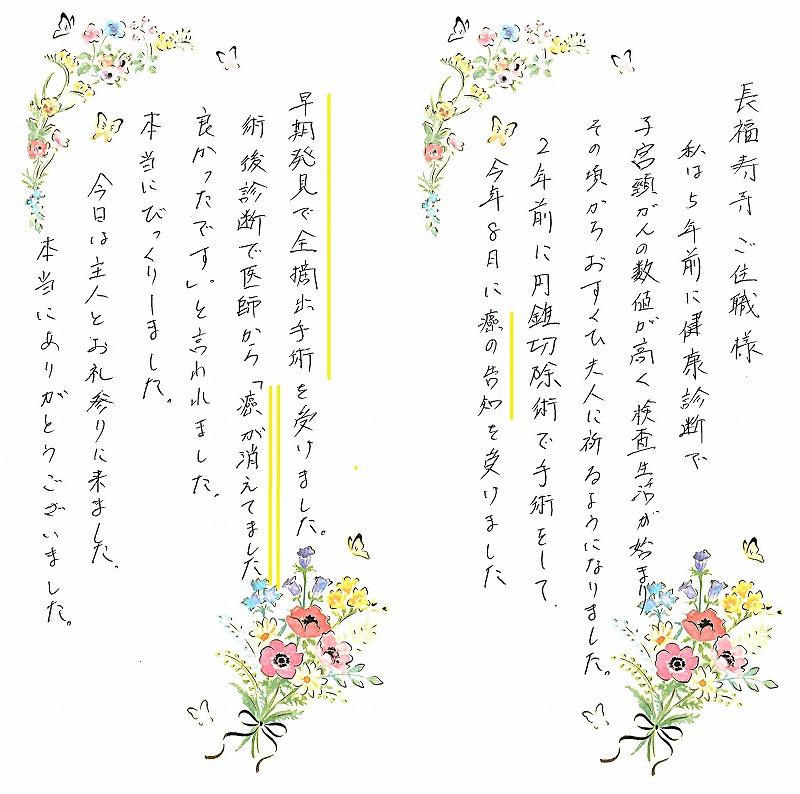 長福寿寺ご住職様
私は5年前に健康診断で
子宮頸がんの数値が高く検査生活が始まり
その頃からおすくひ夫人に祈るようになりました。
2年前に円錐切除術で手術をして、
今年8月に癌の告知を受けました
早期発見で全摘出手術を受けました。
術後診断で医師から「癌が消えてました
良かったです。」と言われました。
本当にびっくりしました。
今日は主人とお礼参りに来ました。
本当にありがとうございました。